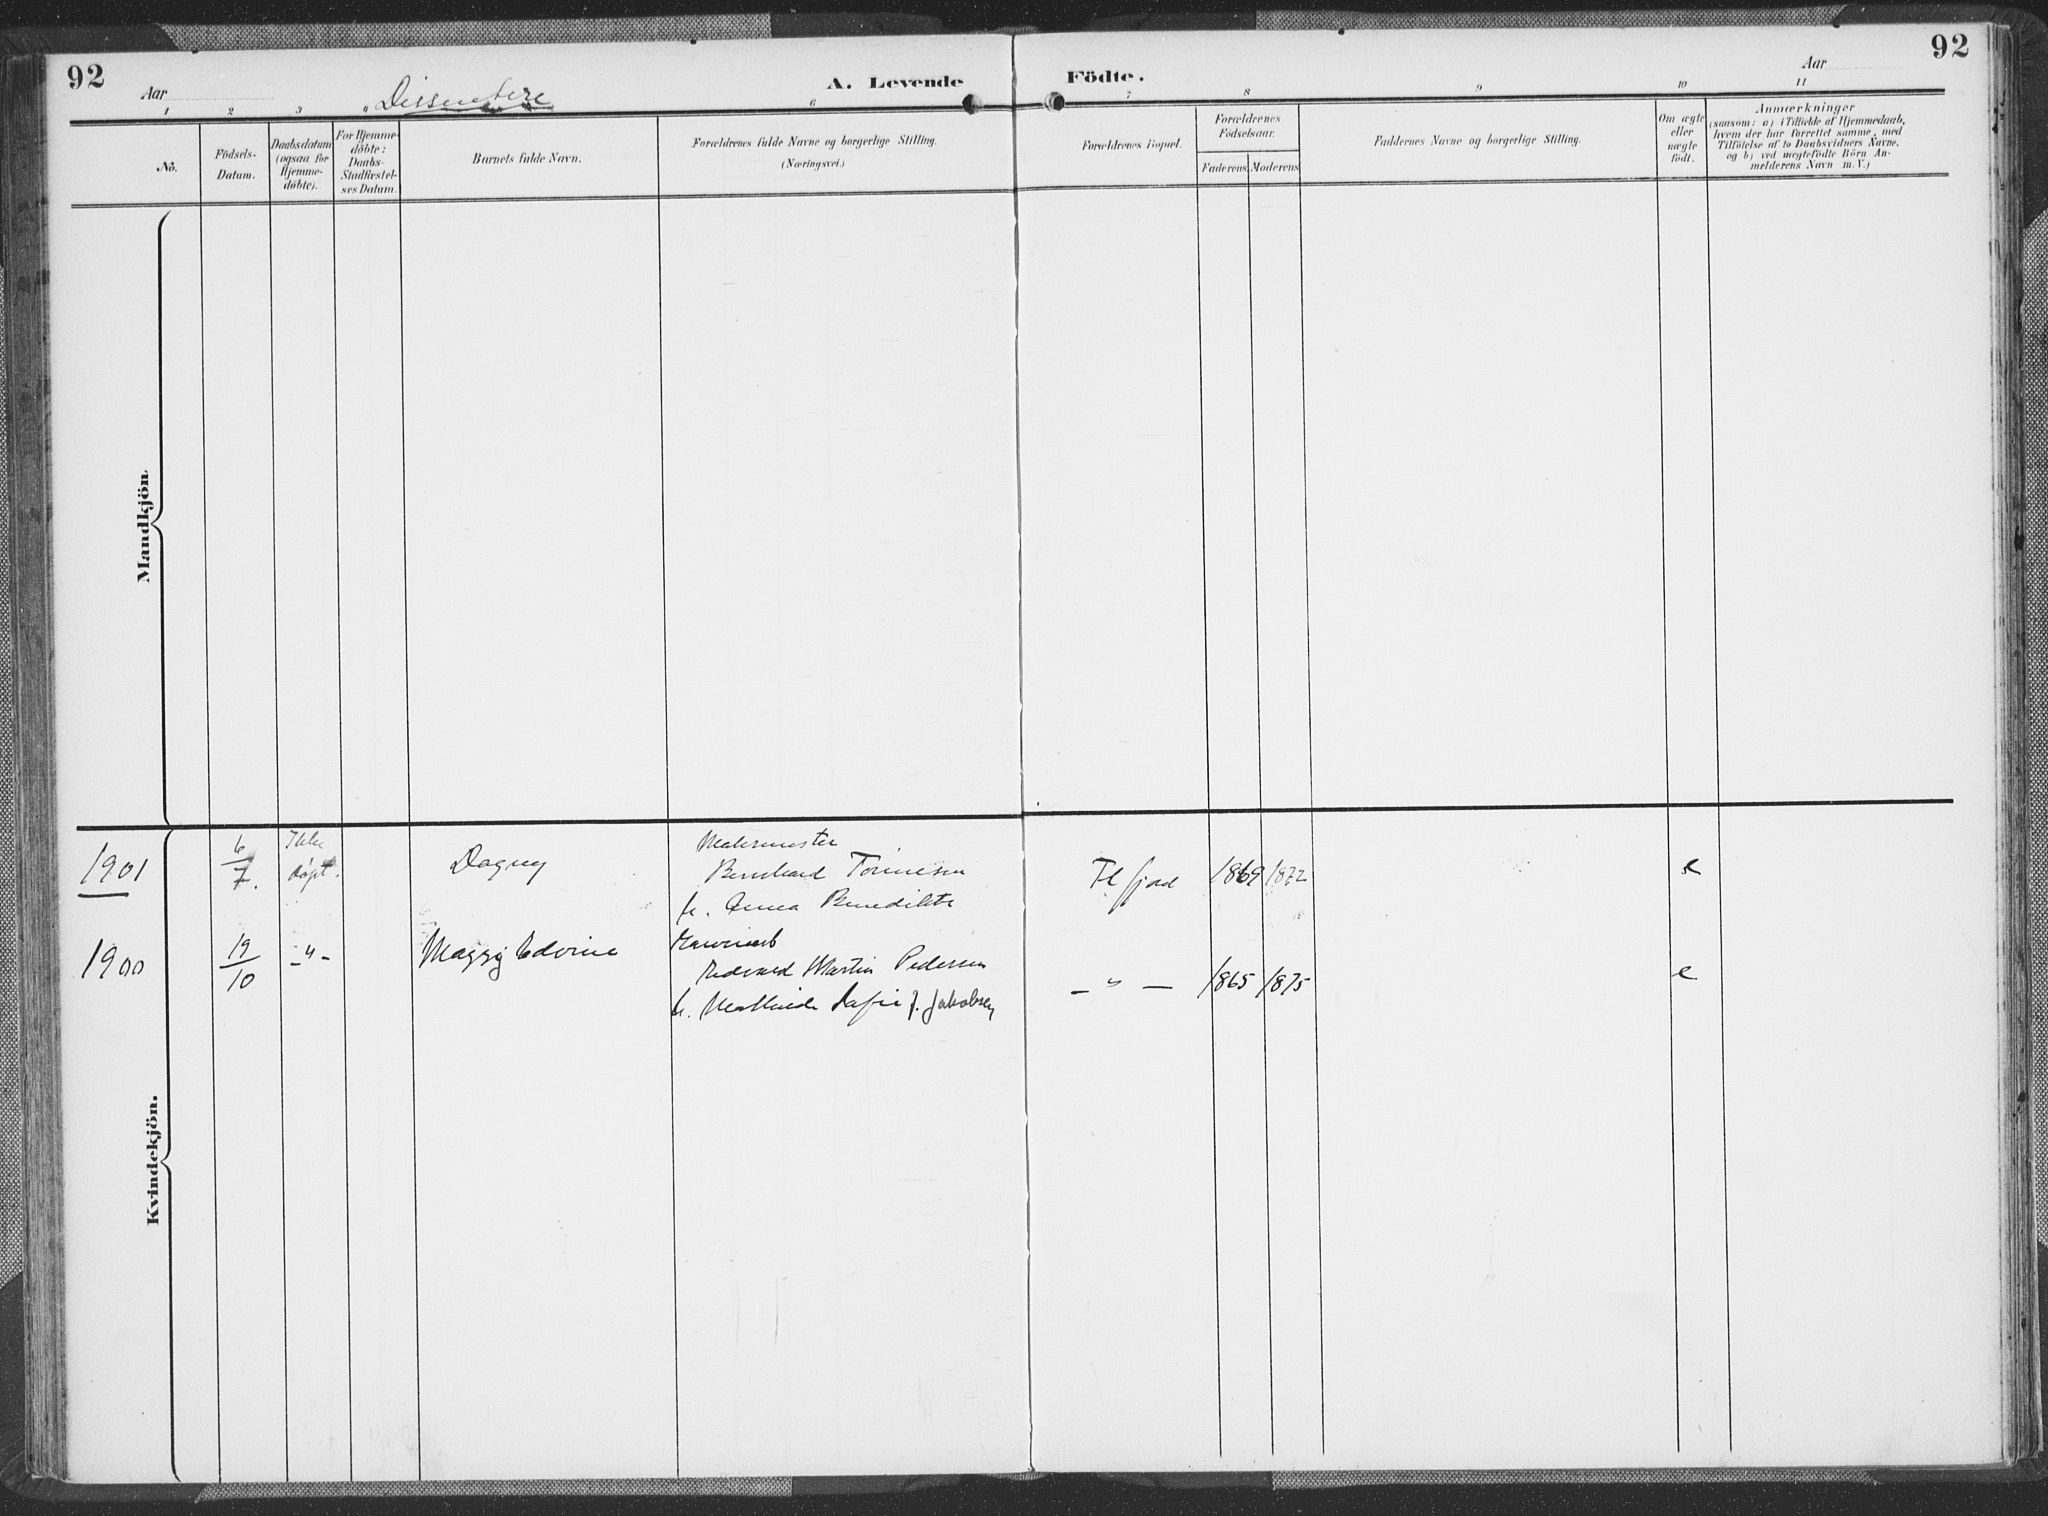 92
Aar
Dissentere
A. Levende
Födte.
Aar
92
1 2 3 4 6 7 8 9 10 11
No.
Födsels-
Datum.
Daabsdatum
(ogsaa for
Hjemme-
döbte).
For Hjemme-
döbte:
Daabs-
Stadfæstel-
ses Datum.
Barnets fulde Navn.
Forældrenes fulde Navne og borgerlige Stilling.
(Næringsvei.)
Forældrenes Bopæl.
Forældrenes
Födselsaar.
Faderens
Moderens
Faddernes Navne og borgerlige Stilling.
Om ægte
eller
uægte
födt.
Anmærkninger
(saasom: a) i Tilfælde af Hjemmedaab,
hvem der har forrettet samme, med
Tilföielse af to Daabsvidners Navne.
og b) ved uægtefödte Börn An-
melderens Navn m. V.)
Mandkjön.
Kvindekjön.
1901
6
7.
Ikke
døpt.
Dagny
Malermester
Bernhard Tönnesen
Anna Benedikte
Fl fjord
1869
1872
e
1900
19
10
-"-
Maggy Edvine
Martin Pedersen
f. Jakobsen
- " -
1865
1875
e